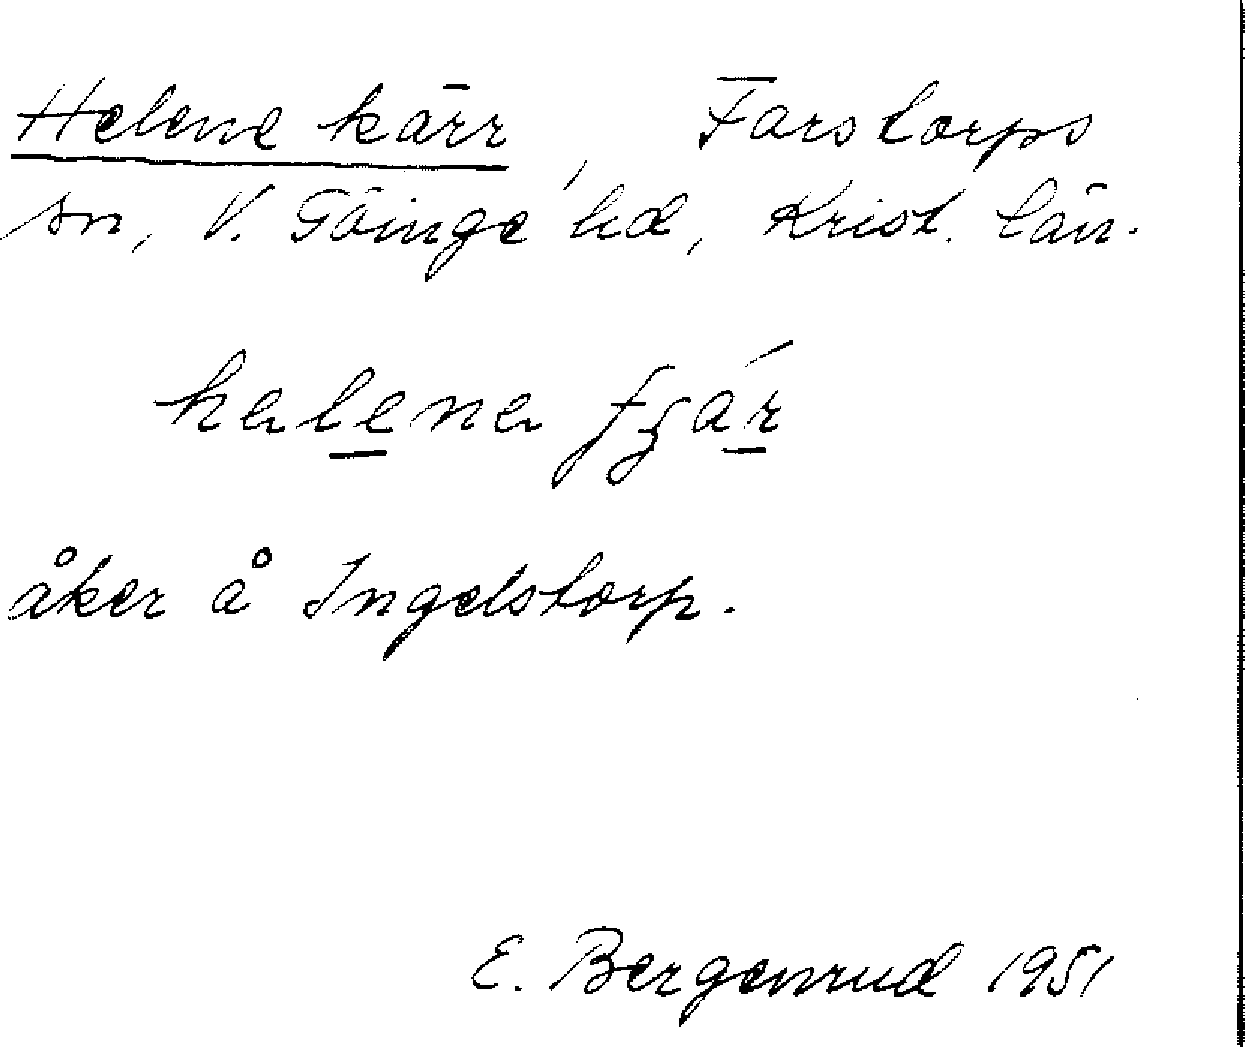 Helene kärr, Farstorps
sn, V. Göinge hd, Krist. län.
helena fʒár
åker å Ingelstorp.
E. Bergenrud 1951